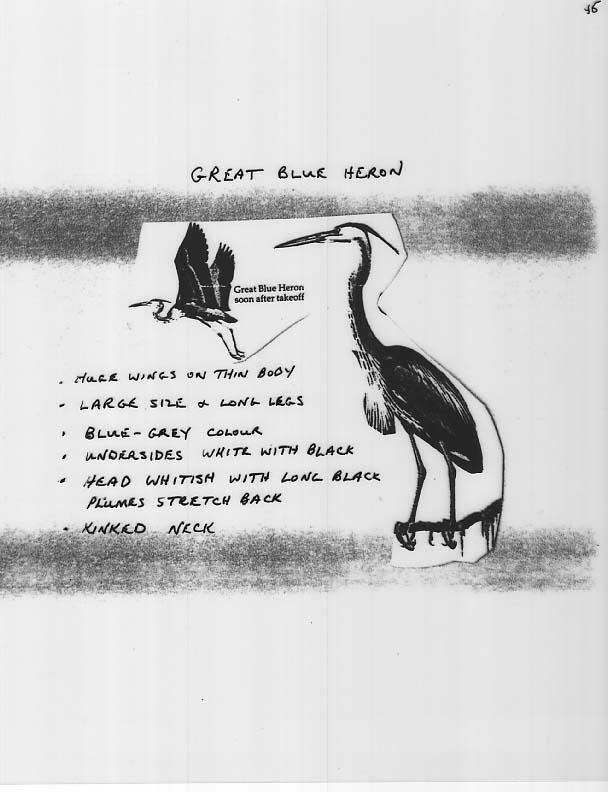 46
GREAT BLUE HERON
Great Blue Heron
soon after takeoff
• HUGE WINGS ON THIN BODY
- LARGE SIZE & LONG LEGS
• BLUE-GREY COLOUR
• UNDERSIDES WHITE WITH BLACK
• HEAD WHITISH WITH LONG BLACK
PLUMES STRETCH BACK
• KINKED NECK